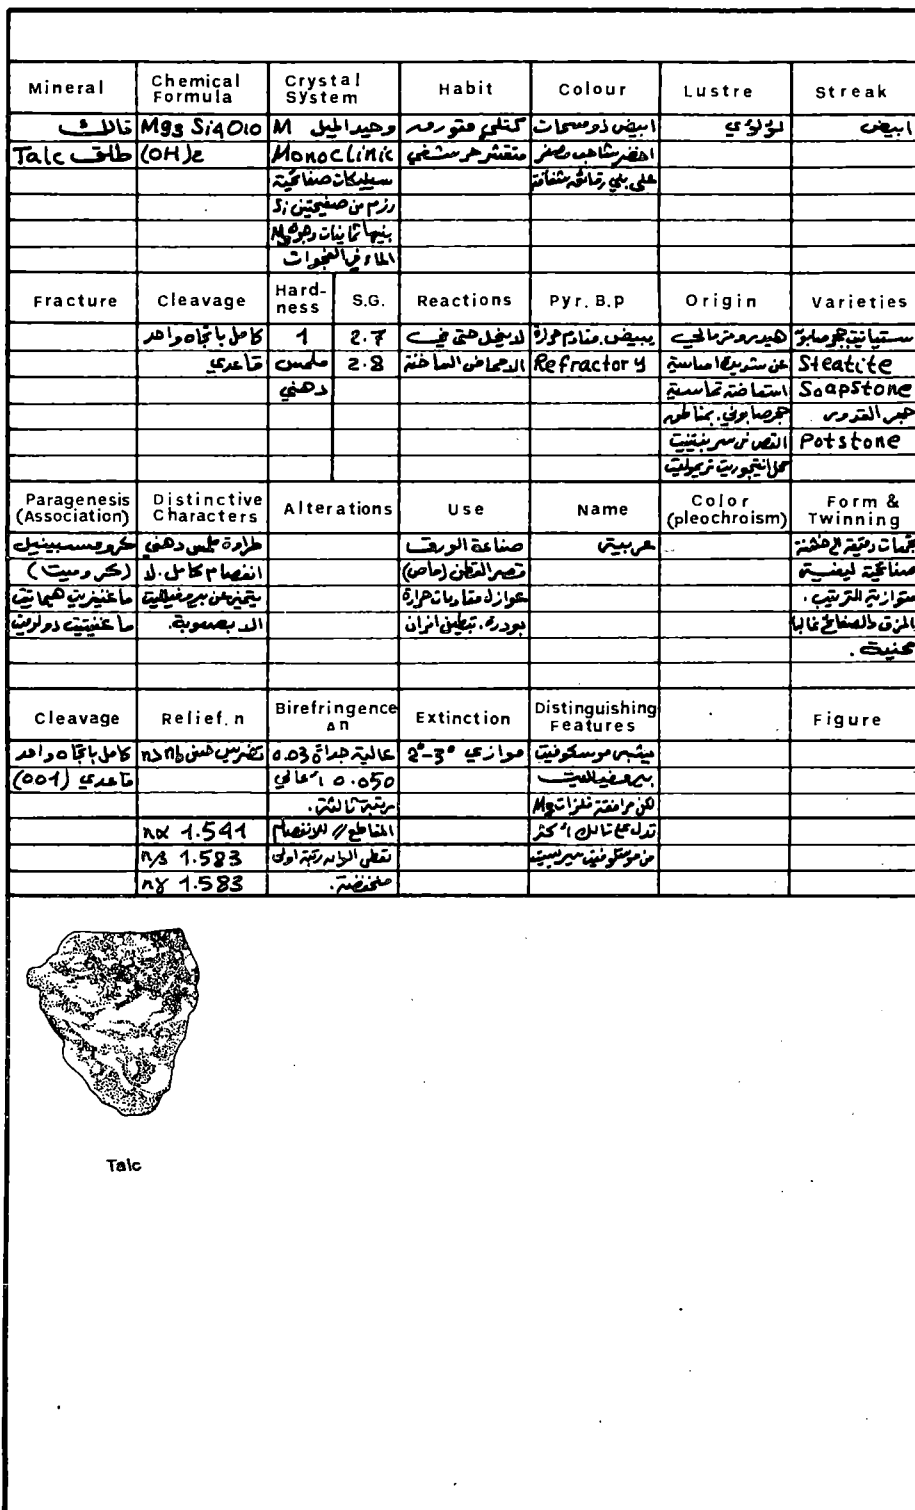 Mineral | Chemical Formula | Crystal System | Habit | Colour | Lustre | Streak
تالك | Mg3 Si4O10 | وحيد الميل M | كتلي متورق | ابيض ذو مسحات | لؤلؤي | ابيض
Talc طلق | (OH)2 | Monoclinic | متقشر حرشفي | اخضر شاحب مصفر
سيليكات صفائحية | على بني رقائقه شفافة
رزم من صفيحتين Si
بينها
الماء في الفجوات
Fracture | Cleavage | Hard-ness | S.G. | Reactions | Pyr. B.p | Origin | Varieties
كامل باتجاه واحد | 1 | 2.7 | لا ينحل حتى في | يبيض. مقاوم حرارة | هيدروترمالي
قاعدي | ملمس | 2.8 | الاحماض الساخنة | Refractory | Steatite
دهني | Soapstone
حجر صابوني. بمناطق | حجر القدور
Potstone
Paragenesis (Association) | Distinctive Characters | Alterations | Use | Name | Color (pleochroism) | Form & Twinning
كرومسبينيل | طراوة ملمس دهني | صناعة الورق | عربية
(كروميت) | انفصام كامل. لا | قصر القطن (ماص) | صفائحية ليفية
ماغنيزيت هيماتيت | يتميز عن بيروفيلليت | عوازل مقاومات حرارة | متوازية الترتيب.
ماغنيتيت دولوميت | الا بصعوبة. | بودرة. تبطين افران | المزق والصفائح غالبا
محنية.
Cleavage | Relief. n | Birefringence Δn | Extinction | Distinguishing Features | Figure
كامل باتجاه واحد | n>nb | عالية جدا 0.03 | موازي 2°-3° | يشبه موسكوفيت
قاعدي (001) | 0.050 | بيروفيلليت
مرتبة ثالثة. | لكن مرافقة فلزات Mg
nα 1.541 | المقاطع // للانفصام | تدل على تالك اكثر
nβ 1.583 | من موسكوفيت
nγ 1.583 | منخفضة.
Talc